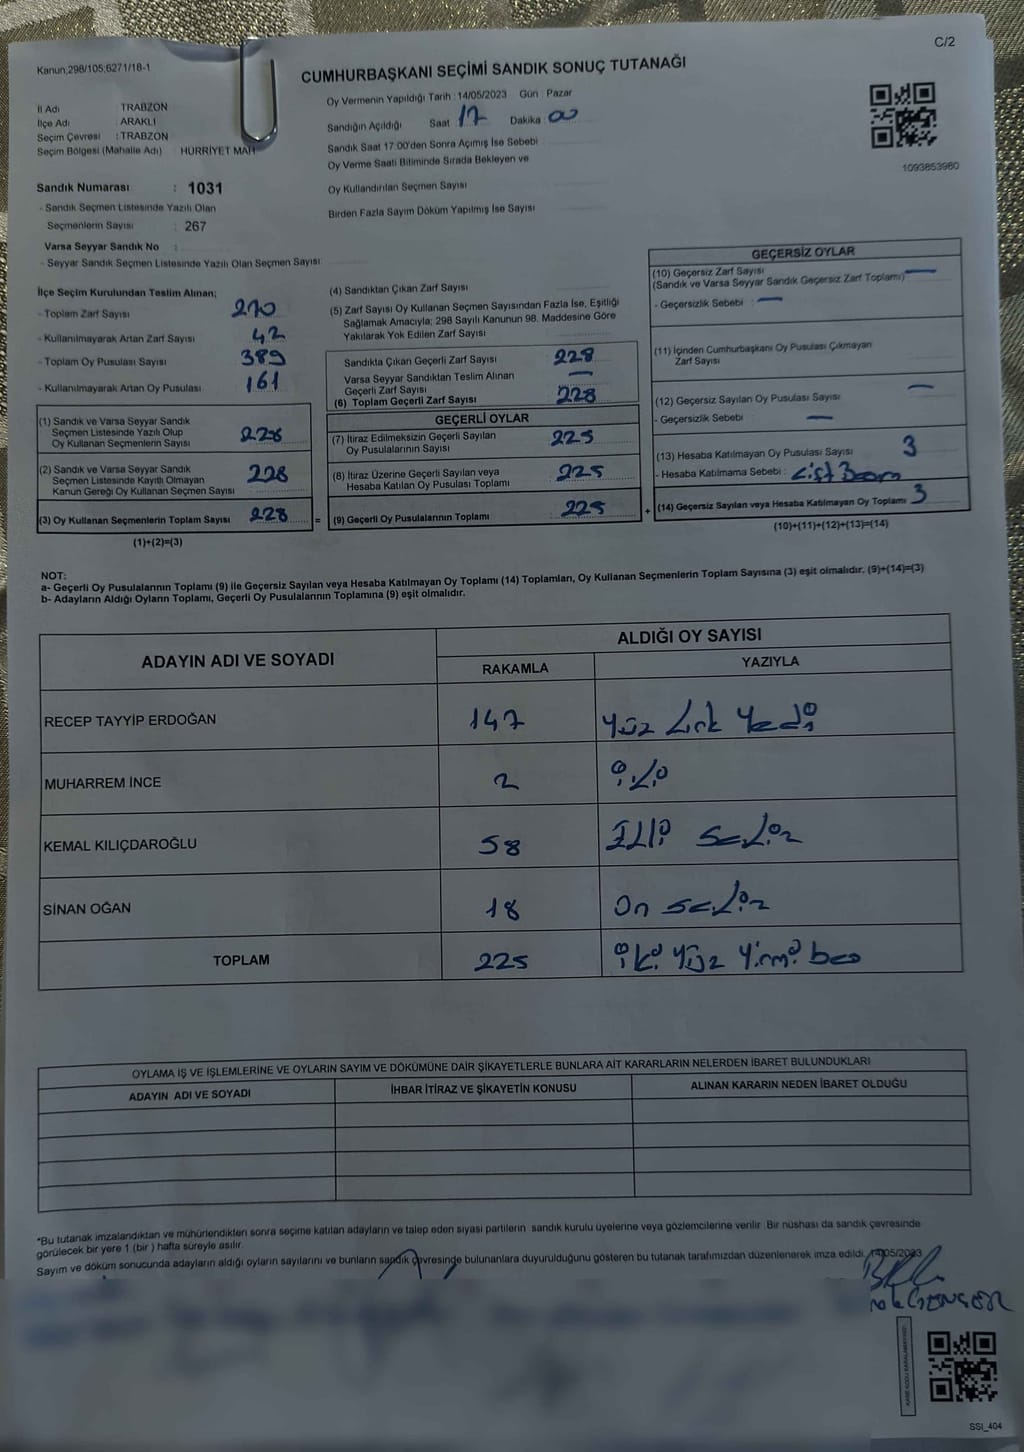 C/2
Kanun;298/105;6271/18-1
CUMHURBAŞKANI SEÇİMİ SANDIK SONUÇ TUTANAĞI
İl Adı TRABZON
İlçe Adı ARAKLI
Seçim Çevresi : TRABZON
Seçim Bölgesi (Mahalle Adı) : HÜRRİYET MAH
Sandık Numarası : 1031
- Sandık Seçmen Listesinde Yazılı Olan
Seçmenlerin Sayısı : 267
Varsa Seyyar Sandık No :
- Seyyar Sandık Seçmen Listesinde Yazılı Olan Seçmen Sayısı
Oy Vermenin Yapıldığı Tarih : 14/05/2023 Gün : Pazar
Sandığın Açıldığı Saat 17 Dakika 00
Sandık Saat 17:00'den Sonra Açımış İse Sebebi
Oy Verme Saati Bitiminde Sırada Bekleyen ve
Oy Kullandırılan Seçmen Sayısı
Birden Fazla Sayım Döküm Yapılmış İse Sayısı
1093853960
İlçe Seçim Kurulundan Teslim Alınan;
- Toplam Zarf Sayısı 270
- Kullanılmayarak Artan Zarf Sayısı 42
- Toplam Oy Pusulası Sayısı 389
- Kullanılmayarak Artan Oy Pusulası 161
(1) Sandık ve Varsa Seyyar Sandık
Seçmen Listesinde Yazılı Olup
Oy Kullanan Seçmenlerin Sayısı 228
(2) Sandık ve Varsa Seyyar Sandık
Seçmen Listesinde Kayıtlı Olmayan
Kanun Gereği Oy Kullanan Seçmen Sayısı 228
(3) Oy Kullanan Seçmenlerin Toplam Sayısı 228 =
(1)+(2)=(3)
(4) Sandıktan Çıkan Zarf Sayısı
(5) Zarf Sayısı Oy Kullanan Seçmen Sayısından Fazla İse, Eşitliği
Sağlamak Amacıyla; 298 Sayılı Kanunun 98. Maddesine Göre
Yakılarak Yok Edilen Zarf Sayısı
Sandıkta Çıkan Geçerli Zarf Sayısı 228
Varsa Seyyar Sandıktan Teslim Alınan
Geçerli Zarf Sayısı —
(6) Toplam Geçerli Zarf Sayısı 228
GEÇERLİ OYLAR
(7) İtiraz Edilmeksizin Geçerli Sayılan
Oy Pusulalarının Sayısı 225
(8) İtiraz Üzerine Geçerli Sayılan veya
Hesaba Katılan Oy Pusulası Toplamı 225
(9) Geçerli Oy Pusulalarının Toplamı 225 +
GEÇERSİZ OYLAR
(10) Geçersiz Zarf Sayısı
(Sandık ve Varsa Seyyar Sandık Geçersiz Zarf Toplamı) —
- Geçersizlik Sebebi : —
(11) İçinden Cumhurbaşkanı Oy Pusulası Çıkmayan
Zarf Sayısı
(12) Geçersiz Sayılan Oy Pusulası Sayısı —
- Geçersizlik Sebebi —
(13) Hesaba Katılmayan Oy Pusulası Sayısı 3
- Hesaba Katılmama Sebebi :
(14) Geçersiz Sayılan veya Hesaba Katılmayan Oy Toplamı 3
(10)+(11)+(12)+(13)=(14)
NOT:
a- Geçerli Oy Pusulalarının Toplamı (9) ile Geçersiz Sayılan veya Hesaba Katılmayan Oy Toplamı (14) Toplamları, Oy Kullanan Seçmenlerin Toplam Sayısına (3) eşit olmalıdır. (9)+(14)=(3)
b- Adayların Aldığı Oyların Toplamı, Geçerli Oy Pusulalarının Toplamına (9) eşit olmalıdır.
ADAYIN ADI VE SOYADI
ALDIĞI OY SAYISI
RAKAMLA YAZIYLA
RECEP TAYYİP ERDOĞAN 147 Yüz kırk Yedi
MUHARREM İNCE 2 iki
KEMAL KILIÇDAROĞLU 58 Elli sekiz
SİNAN OĞAN 18 On sekiz
TOPLAM 225 iki Yüz Yirmi beş
OYLAMA İŞ VE İŞLEMLERİNE VE OYLARIN SAYIM VE DÖKÜMÜNE DAİR ŞİKAYETLERLE BUNLARA AİT KARARLARIN NELERDEN İBARET BULUNDUKLARI
ADAYIN ADI VE SOYADI İHBAR İTİRAZ VE ŞİKAYETİN KONUSU ALINAN KARARIN NEDEN İBARET OLDUĞU
*Bu tutanak imzalandıktan ve mühürlendikten sonra seçime katılan adayların ve talep eden siyasi partilerin sandık kurulu üyelerine veya gözlemcilerine verilir. Bir nüshası da sandık çevresinde
görülecek bir yere 1 (bir) hafta süreyle asılır.
Sayım ve döküm sonucunda adayların aldığı oyların sayılarını ve bunların sandık çevresinde bulunanlara duyurulduğunu gösteren bu tutanak tarafımızdan düzenlenerek imza edildi. 14/05/2023
SSI_404